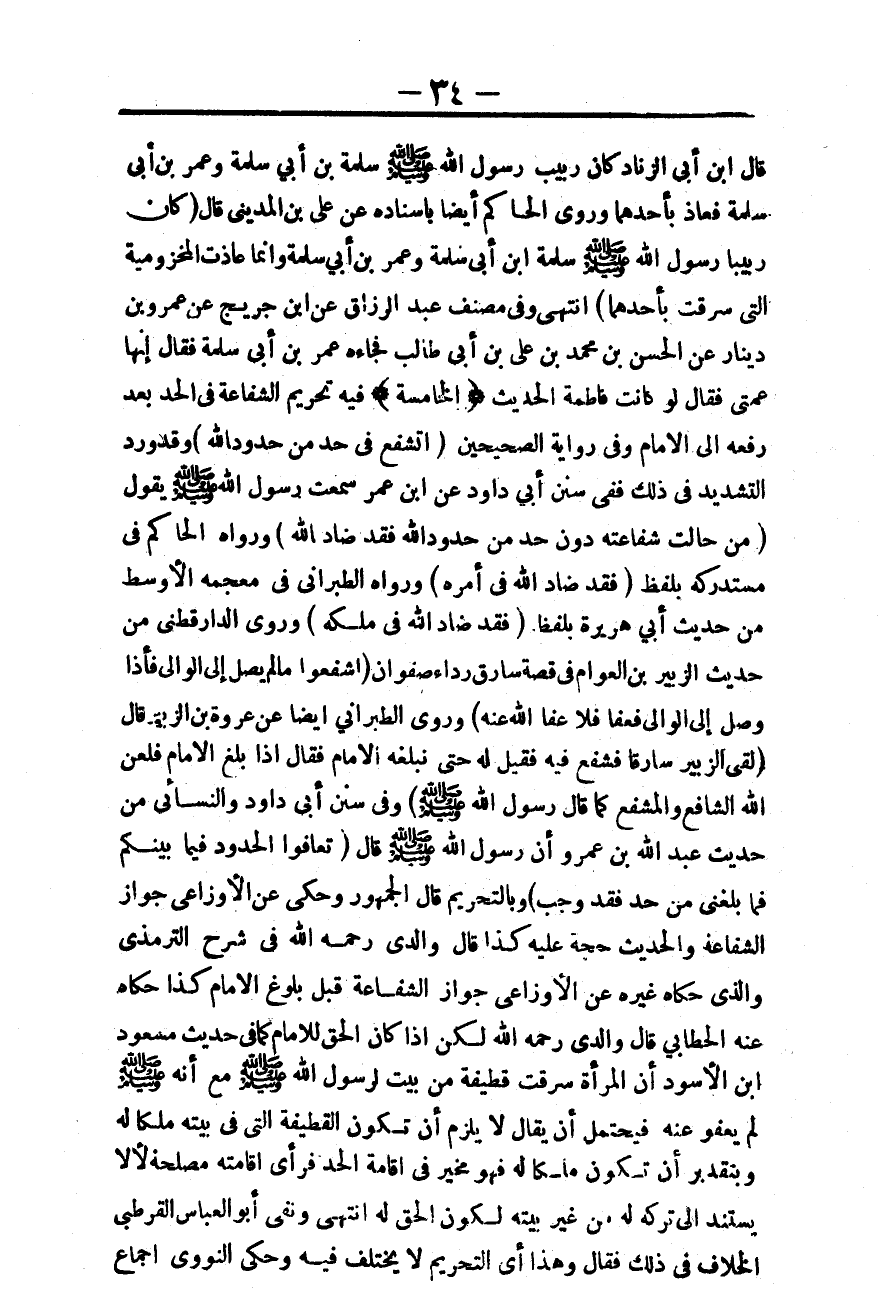 — ٣٤ —
قال ابن أبى الزناد كان ربيب رسول الله ﷺ سلمة بن أبي سلمة وعمر بن أبى
سلمة فعاذ بأحدهما وروى الحاكم أيضا باسناده عن على بن المدينى قال (كان
ربيبا رسول الله ﷺ سلمة ابن أبى سلمة وعمر بن أبي سلمة وانما عاذت المخزومية
التى سرقت بأحدهما) انتهى وفى مصنف عبد الرزاق عن ابن جريج عن عمرو بن
دينار عن الحسن بن محمد بن على بن أبي طالب فجاءه عمر بن أبي سلمة فقال إنها
عمتى فقال لو كانت فاطمة الحديث ﴿ الخامسة ﴾ فيه تحريم الشفاعة فى الحد بعد
رفعه الى الامام وفى رواية الصحيحين ( اتشفع فى حد من حدود الله ) وقد ورد
التشديد فى ذلك ففى سنن أبي داود عن ابن عمر سمعت رسول الله ﷺ يقول
( من حالت شفاعته دون حد من حدود الله فقد ضاد الله ) ورواه الحاكم فى
مستدركه بلفظ ( فقد ضاد الله فى أمره ) ورواه الطبرانى فى معجمه الأوسط
من حديث أبي هريرة بلفظ ( فقد ضاد الله فى ملكه ) وروى الدارقطنى من
حديث الزبير بن العوام فى قصة سارق رداء صفوان (اشفعوا مالم يصل إلى الوالى فأذا
وصل إلى الوالى فعفا فلا عفا الله عنه) وروى الطبراني ايضا عن عروة بن الزبير قال
(لقى الزبير سارقا فشفع فيه فقيل له حتى نبلغه الامام فقال اذا بلغ الامام فلعن
الله الشافع والمشفع كما قال رسول الله ﷺ) وفى سنن أبى داود والنسائى من
حديث عبد الله بن عمرو أن رسول الله ﷺ قال ( تعافوا الحدود فيما بينكم
فما بلغنى من حد فقد وجب) وبالتحريم قال الجمهور وحكى عن الأوزاعى جواز
الشفاعة والحديث حجة عليه كذا قال والدى رحمه الله فى شرح الترمذى
والذى حكاه غيره عن الأوزاعى جواز الشفاعة قبل بلوغ الامام كذا حكاه
عنه الخطابي قال والدى رحمه الله لكن اذا كان الحق للامام كما فى حديث مسعود
ابن الأسود أن المرأة سرقت قطيفة من بيت لرسول الله ﷺ مع أنه ﷺ
لم يعفو عنه فيحتمل أن يقال لا يلزم أن تكون القطيفة التى فى بيته ملكا له
وبتقدير أن تكون ملكا له فهو مخير فى اقامة الحد فرأى اقامته مصلحة لألا
يستند الى تركه له من غير بيته لكون الحق له انتهى ونفى أبو العباس القرطبي
الخلاف فى ذلك فقال وهذا أى التحريم لا يختلف فيه وحكى النووى اجماع